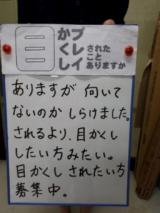 目かブ
くレされた
しイこと
ありますか
ありますが 向いて
ないのか しらけました。
されるより、目かくし
したい方みたい。
目かくし されたい方
募集中。